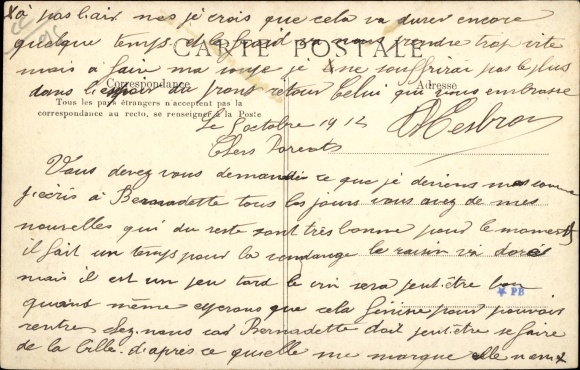 x à pas l'air mes je crois que cela va durer encore
quelque temps et le froid va nous prendre trop vite
CARTE POSTALE
mais à faire ma je ne souffrirai pas le plus
Correspondance
Adresse
dans l'espoir du prons retour Celui qui vous embrasse
Tous les pays étrangers n'acceptent pas la
correspondance au recto, se renseigner à la Poste
Le 5 octobre 191
Chers Parents
Vous devez vous demander ce que je deviens mes comme
j'écris à Bernadette tous les jours vous avez de mes
nouvelles qui du reste sont très bonne pour le moment
il fait un temps pour la vendange le raisin va doré
mais il est un peu tard le vin sera peut-être bon
PB
quand même espérons que cela finire pour pouvoir
rentre chez nous car Bernadette doit peut-être se faire
de la bille d'après ce qu'elle me marque elle n'en x